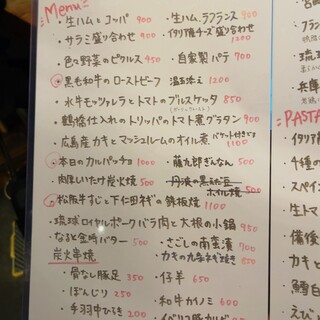 Menu
・生ハムとコッパ 900 ・生ハム、ラフランス 900
・サラミ盛り合わせ 900 ・イタリア産チーズ盛り合わせ 1200
・色々野菜のピクルス 450 ・自家製パテ 700
・黒毛和牛のローストビーフ 温玉添え 1200
・水牛モッツァレラとトマトのブルスケッタ 850
・鶴橋仕入れのトリッパのトマト煮グラタン 900
・広島産カキとマッシュルームのオイル煮 バゲット付き 1100
・本日のカルパッチョ 1000 ・藤九郎ぎんなん 500
・肉厚しいたけ炭火焼 500 ・丹波の黒えだ豆ホイル焼 500
・松阪牛すじと下仁田ネギの鉄板焼 1100
・琉球ロイヤルポークバラ肉と大根の小鍋 950
・なると金時バター 500 ・さごしの南蛮漬 700
・カキの九条ネギ焼き 850
炭火串焼
・骨なし豚足 350 ・仔羊 650
・ぼんじり 250 ・和牛カイノミ 600
・手羽中ひらき 200
PASTA
・イタリア
・4種の
・スペイン
・生トマ
・備後
・カキと
・鱈白
・えび